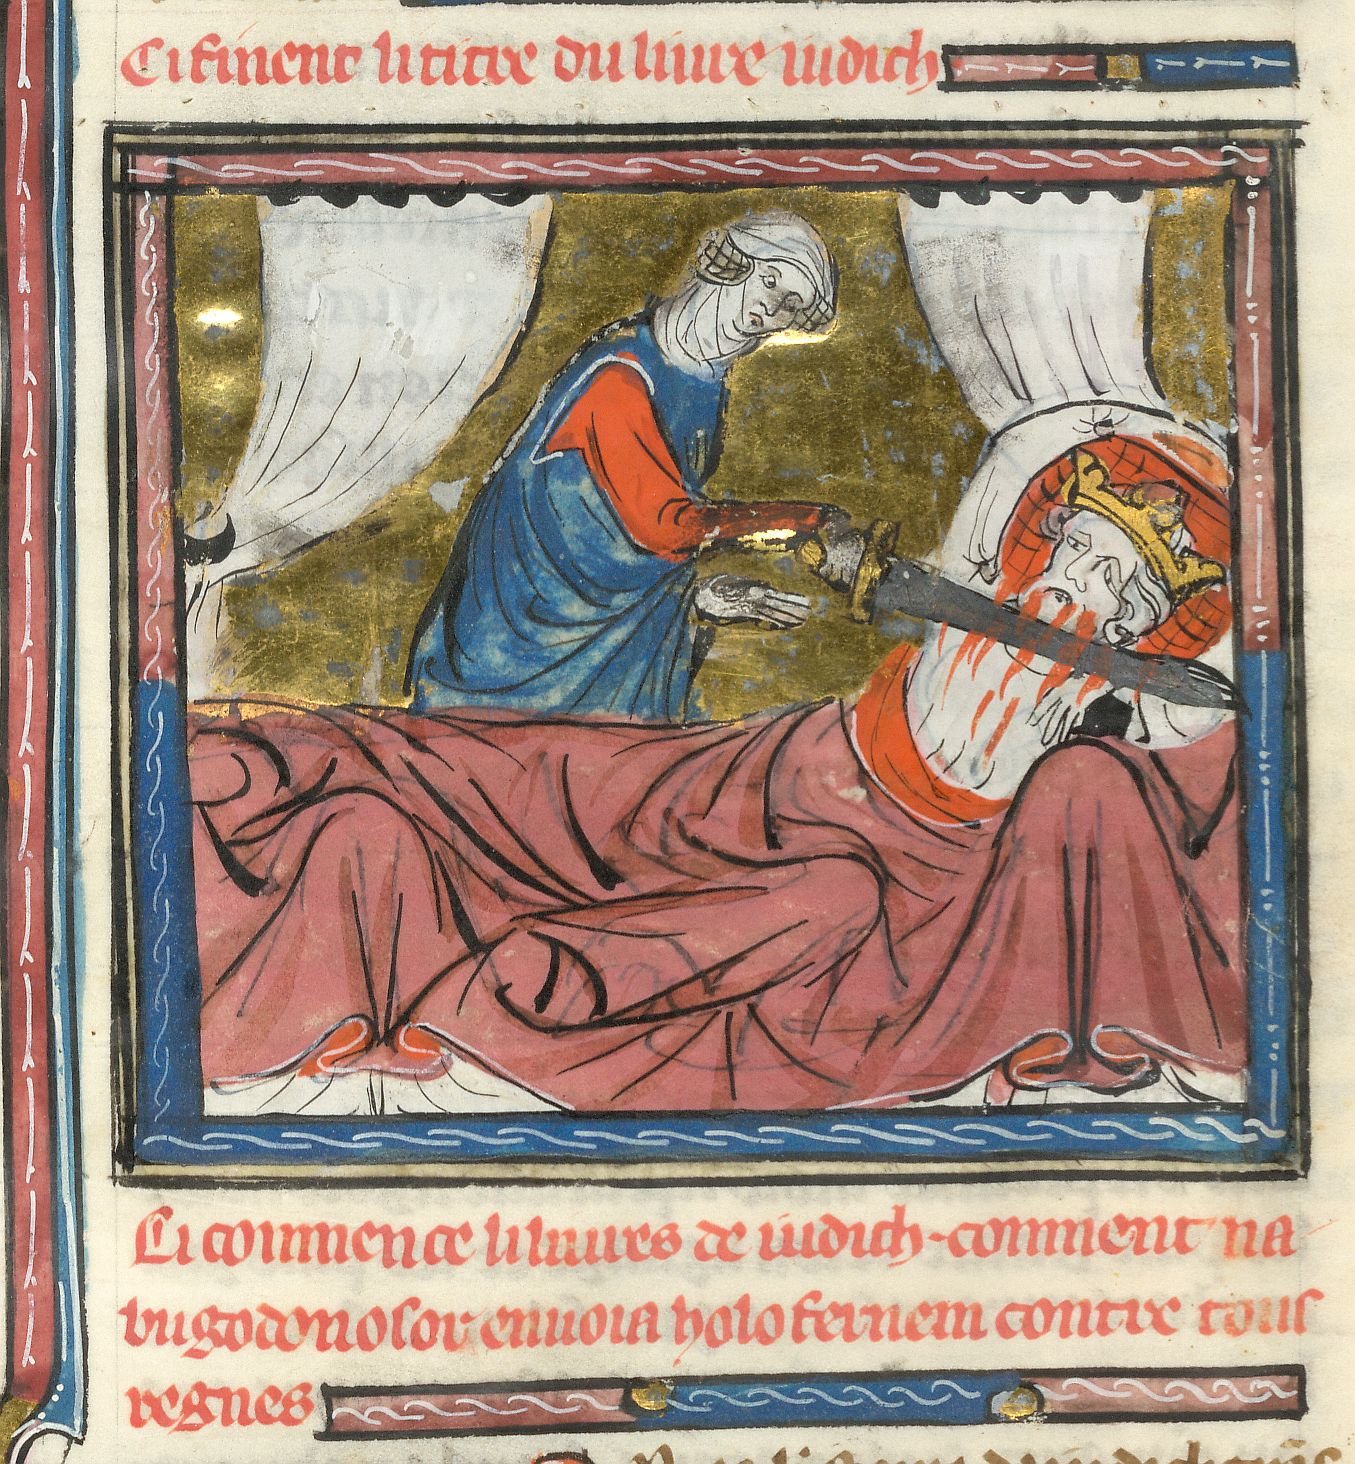 Ci finent li titre du livre iudich
Ci commence li livres de iudich. comment na
bugodonosor envoia holofernem contre tous
regnes